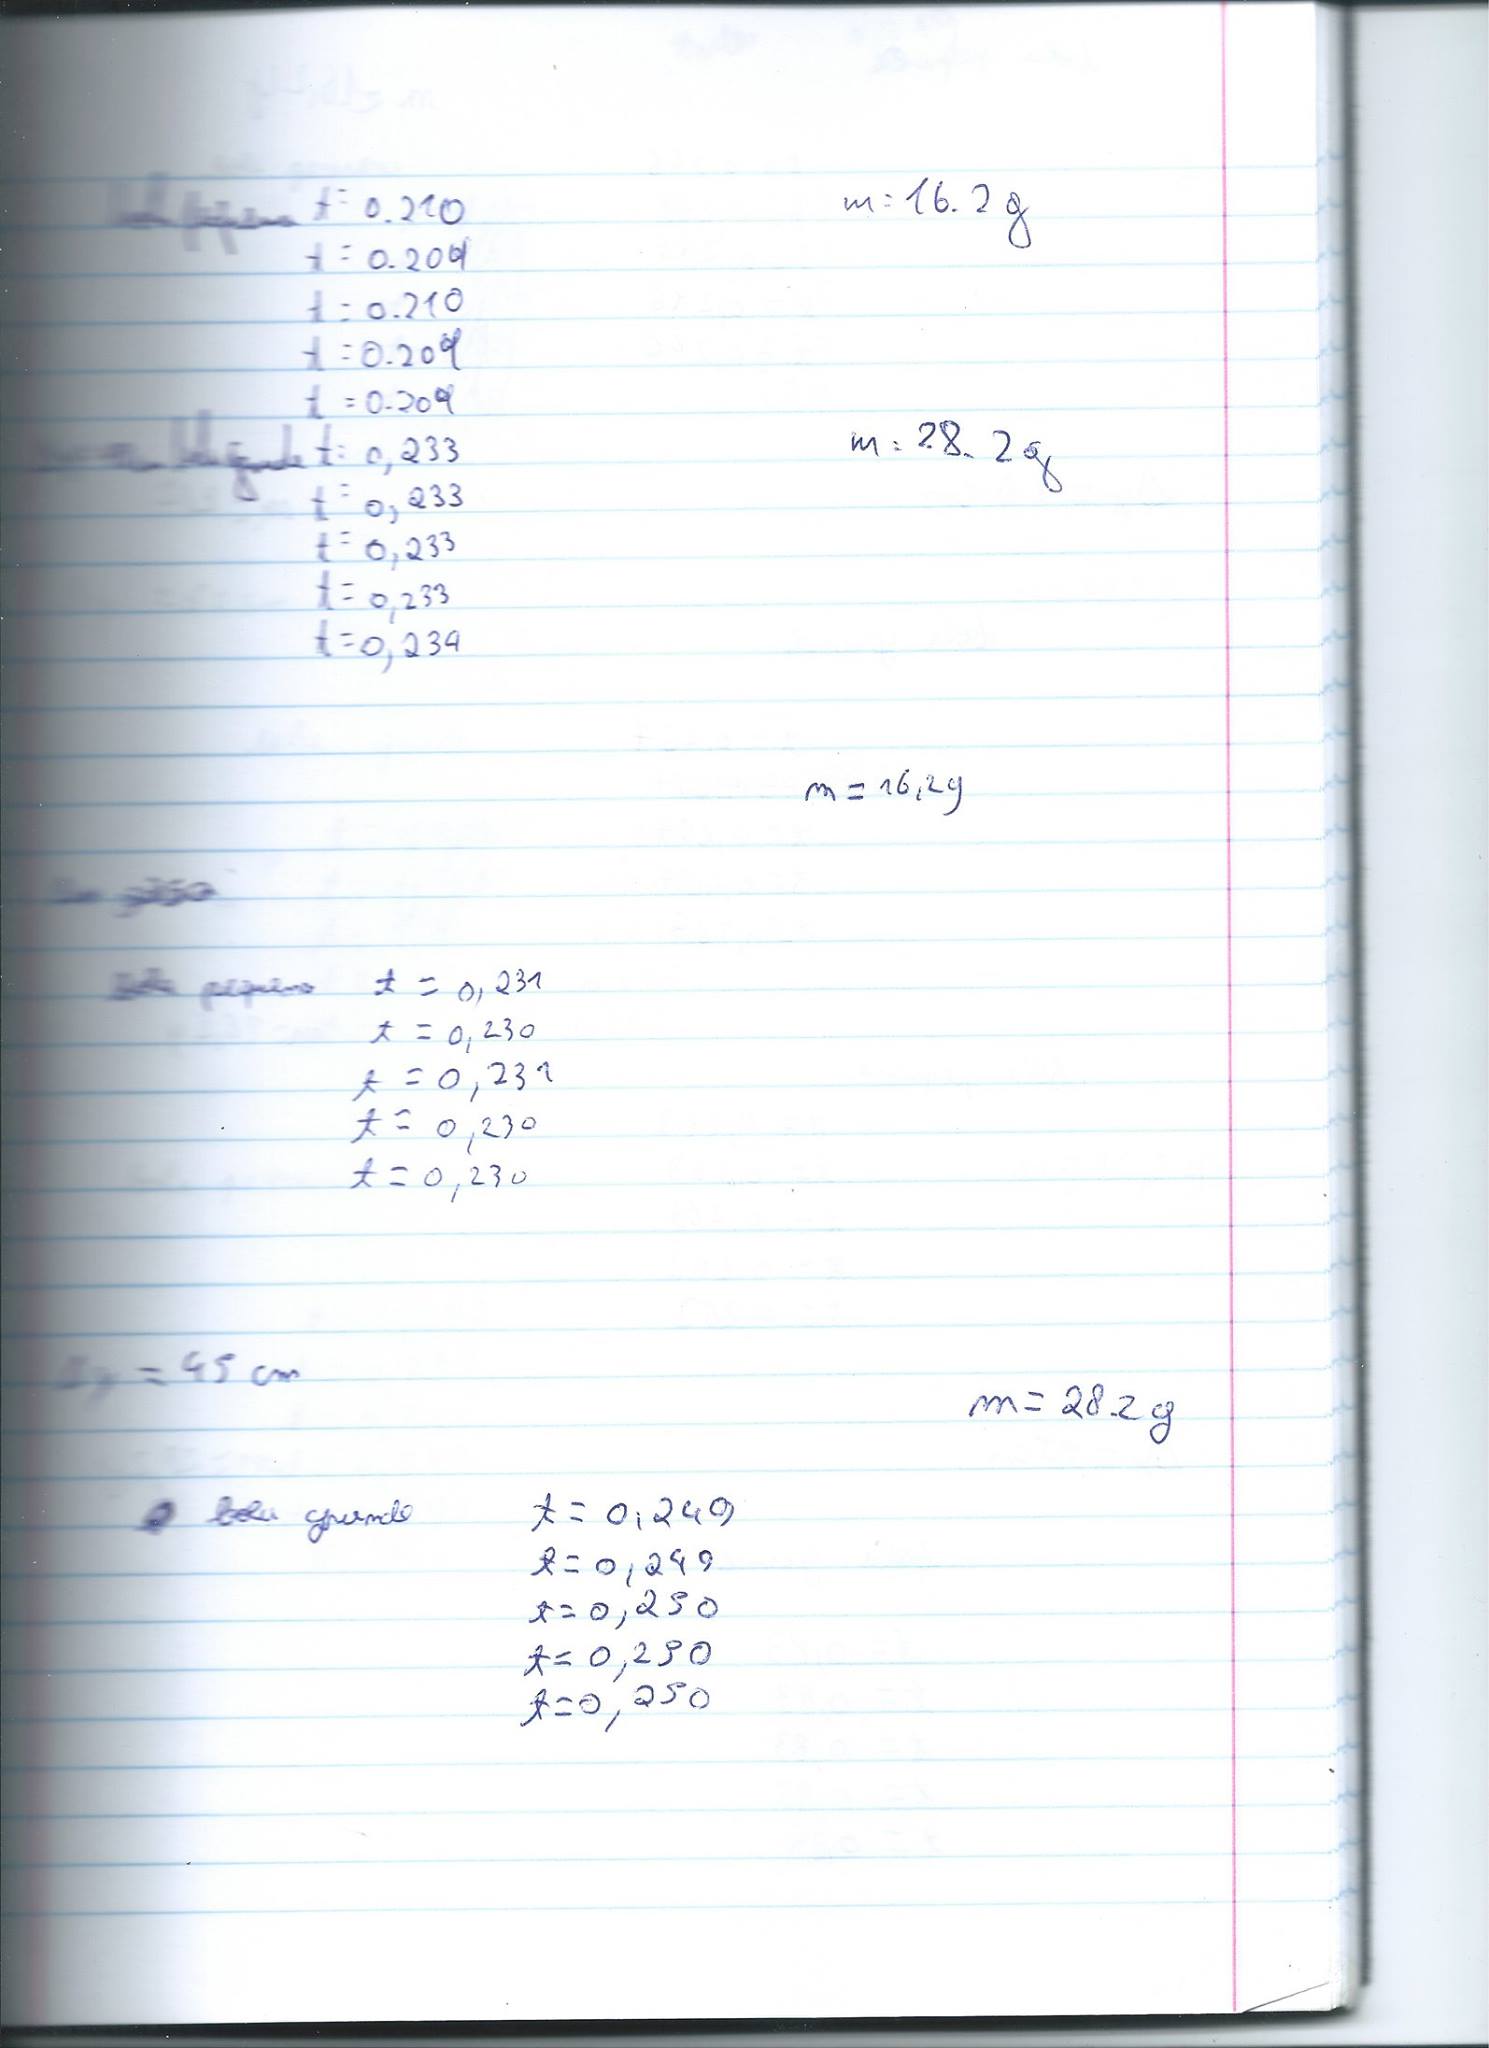 t = 0.210 m = 16.2 g
t = 0.209
t = 0.210
t = 0.209
t = 0.209
bola grande t = 0,233 m = 28.2 g
t = 0,233
t = 0,233
t = 0,233
t = 0,234
m = 16,2g
bola pequena t = 0,231
t = 0,230
t = 0,231
t = 0,230
t = 0,230
= 45 cm
m = 28.2 g
bola grande t = 0,249
t = 0,249
t = 0,250
t = 0,250
t = 0,250